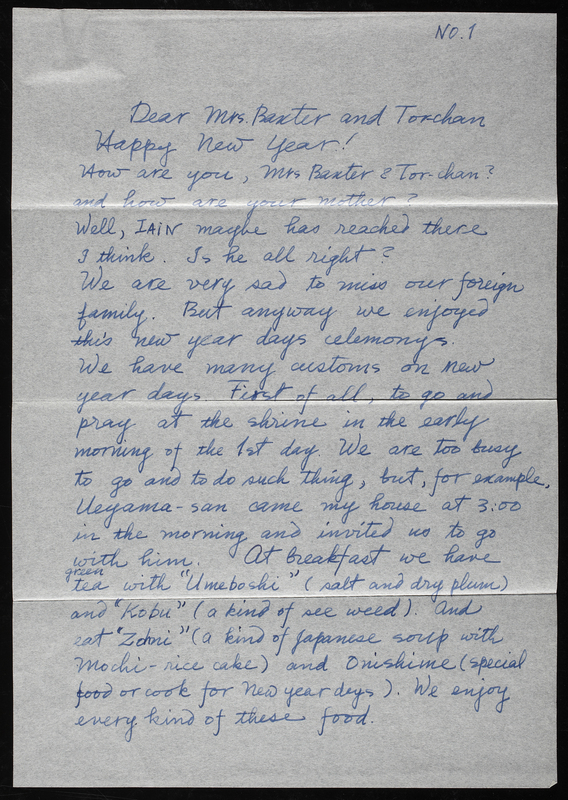 NO.1
Dear Mrs. Baxter and Tor-chan
Happy New Year!
How are you, Mrs Baxter & Tor-chan?
and how are your mother?
Well, IAIN maybe has reached there
I think. Is he all right?
We are very sad to miss our foreign
family. But anyway we enjoyed
this new year days celemonys.
We have many customs on new
year days. First of all, to go and
pray at the shrine in the early
morning of the 1st day. We are too busy
to go and to do such thing, but, for example,
Ueyama-san came my house at 3:00
in the morning and invited us to go
with him. At breakfast we have
green
tea with "Umeboshi" (salt and dry plum)
and "Kobu" (a kind of see weed). And
eat "Zoni" (a kind of Japanese soup with
Mochi-rice cake) and Onishime (special
food or cook for New year days). We enjoy
every kind of these food.